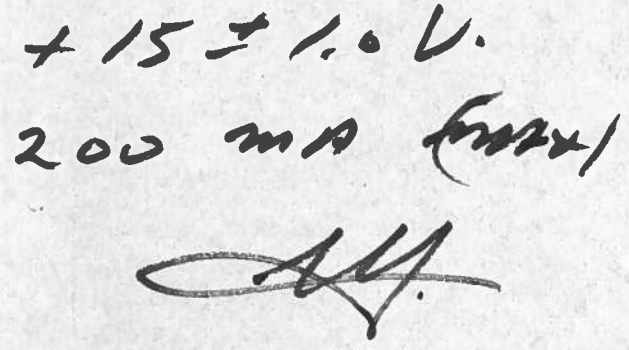 + 15 ± 1.0 V.
200 mA (max)